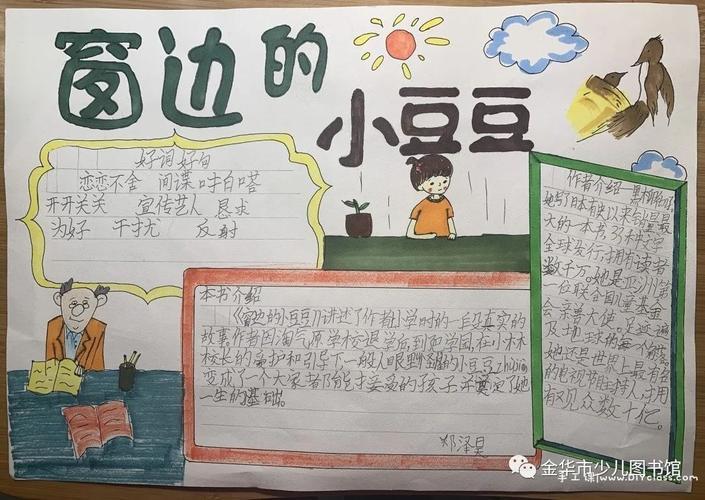 窗边的
小豆豆
好词好句
恋恋不舍 间谍 吽白嗒
开开关关 宣传艺人 恳求
为好 干扰 反射
本书介绍
《窗边的小豆豆》讲述了作者小学时的一段真实的
故事作者因淘气原学校退学后到和学园在小林
校长的爱护和引导下一般人眼里怪的小豆豆zhújiàn
变成了一个大家者能接受的孩子并奠定了她
一生的基础。
邓泽昊
作者介绍 黑柳彻
她写了日本有史以来销量最
大的一本书
全球发行拥有读者
数千万。她是亚洲第
一位联合国儿童基金
会亲善大使。足迹遍
及地球的每个
她还是世界上最有名
的电视节目主持人
有观众数十亿。
金华市少儿图书馆
手工课(www.DIYclass.com)